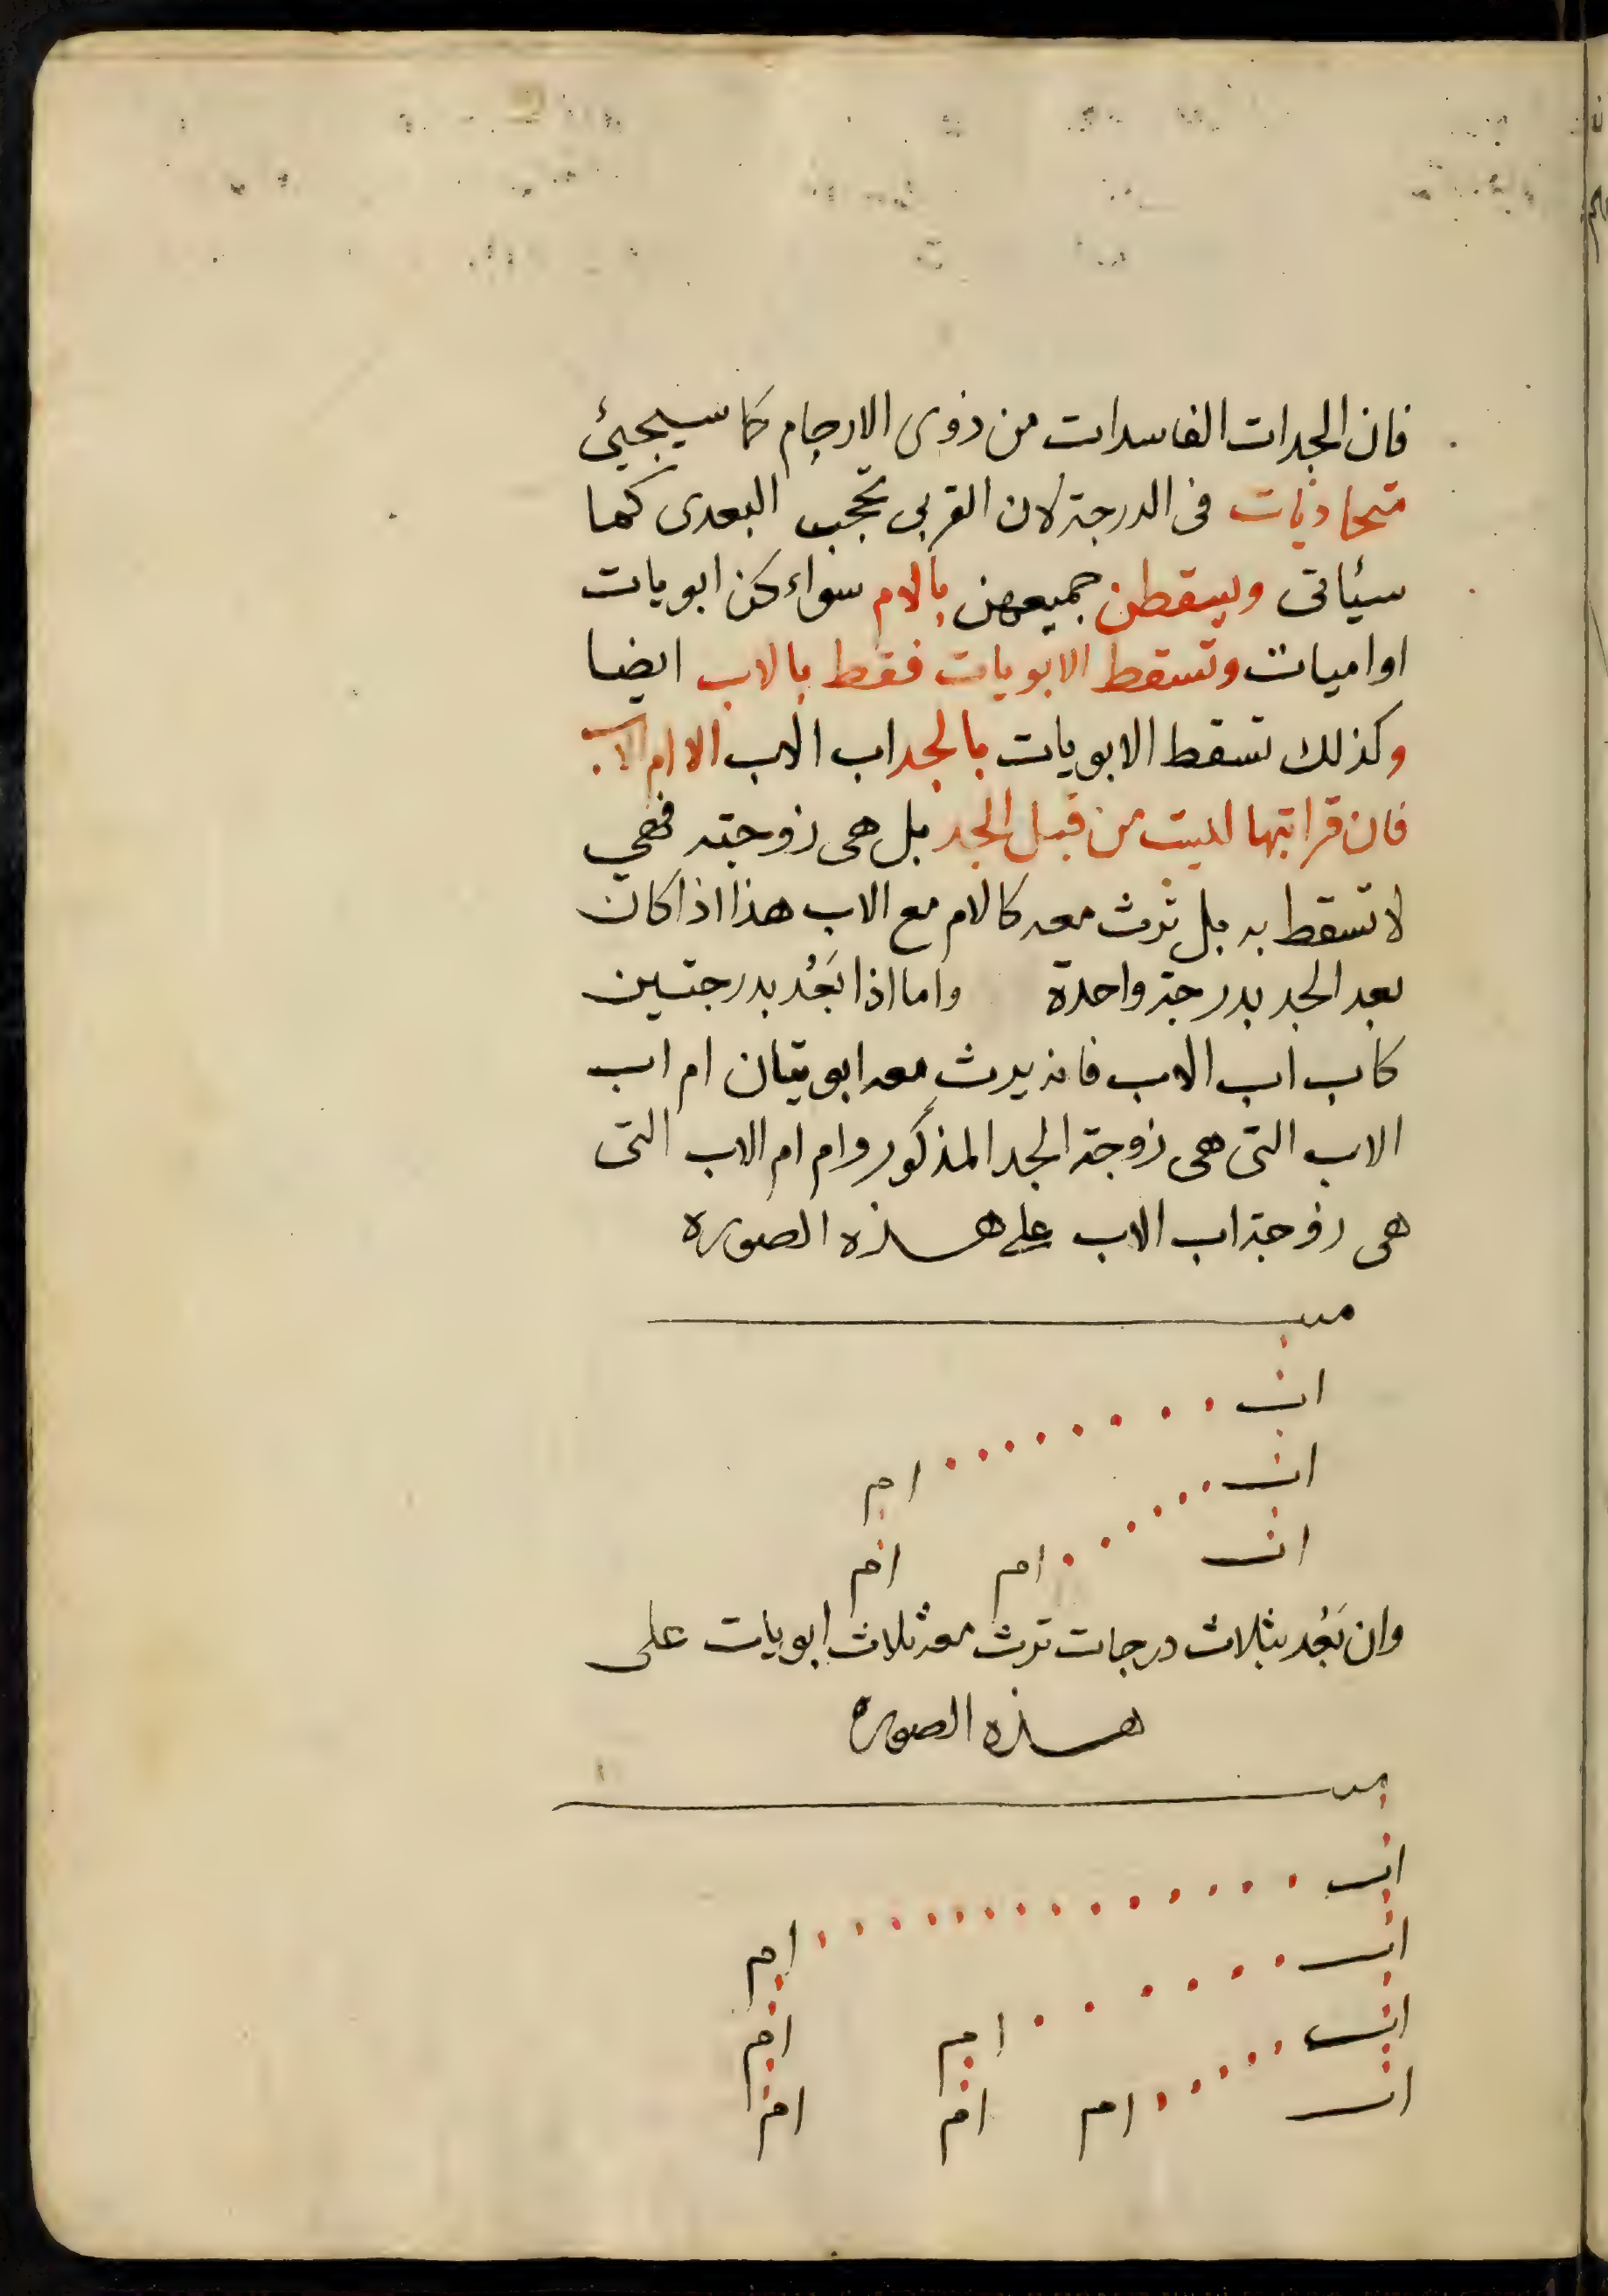 فان الجدات الفاسدات من ذوى الارحام كما سيجيئ
متحاذيات فى الدرجة لان القربى تحجب البعدى كما
سيأتى ويسقطن جميعهن بالام سواء كن ابويات
او اميات وتسقط الابويات فقط بالاب ايضا
وكذلك تسقط الابويات بالجد اب الاب الا ام الاب
فان قرابتها للميت من قبل الجد بل هى زوجته فهي
لا تسقط به بل ترث معه كالام مع الاب هذا اذا كان
بعد الجد بدرجة واحدة واما اذا بَعُد بدرجتين
كاب اب الاب فانه يرث معه ابويتان ام اب
الاب التى هى زوجة الجد المذكور وام ام الاب التى
هى زوجة اب الاب على هذه الصورة
ميت
اب
ام
اب
اب ام ام
وان بَعُد بثلاث درجات ترث معه ثلاث ابويات على
هذه الصورة
ميت
اب
ام
اب
اب ام ام
اب ام ام ام